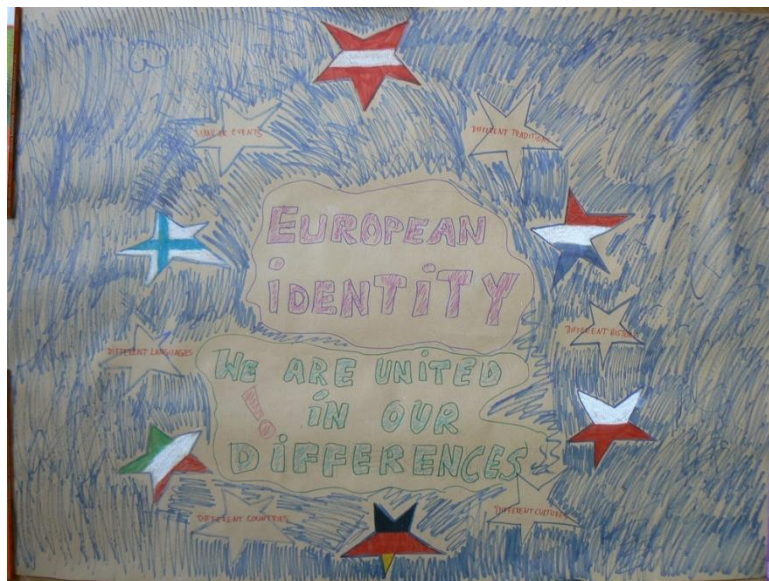 DIFFERENT TRADITIONS
EUROPEAN
IDENTITY
DIFFERENT
DIFFERENT LANGUAGES
WE ARE UNITED
! IN OUR
DIFFERENCES
DIFFERENT COUNTRIES
DIFFERENT CULTURE